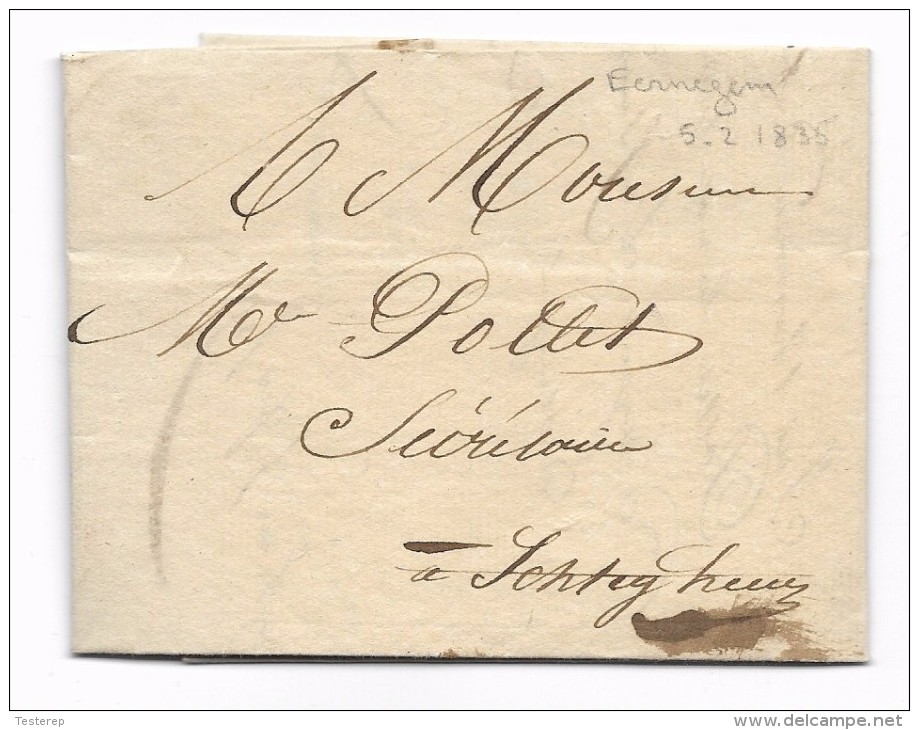 Eernegem
5-2 1835
A Monsieur
Mr Pollet
Secrétaire
à Ichteghem
Testerep
delcampe.net